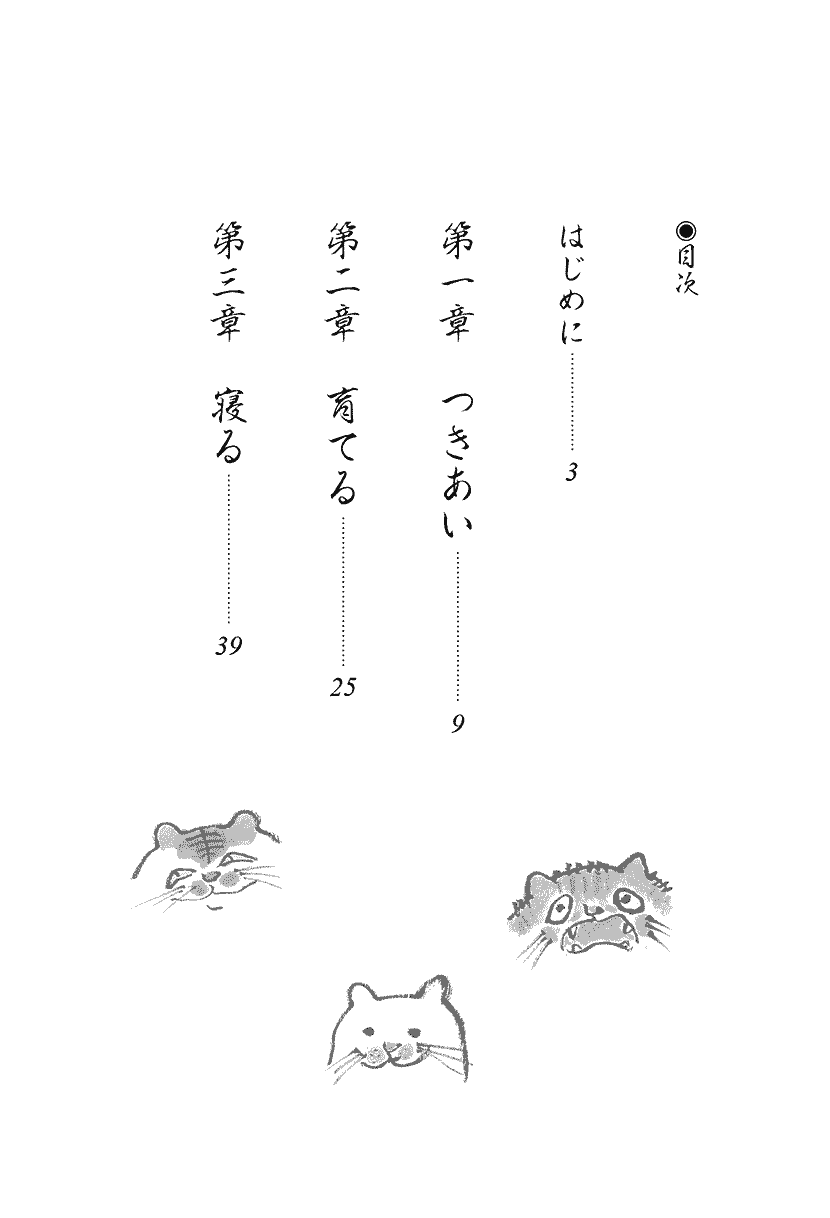 ◉目次
はじめに……………3
第一章　つきあい……………9
第二章　育てる……………25
第三章　寝る……………39